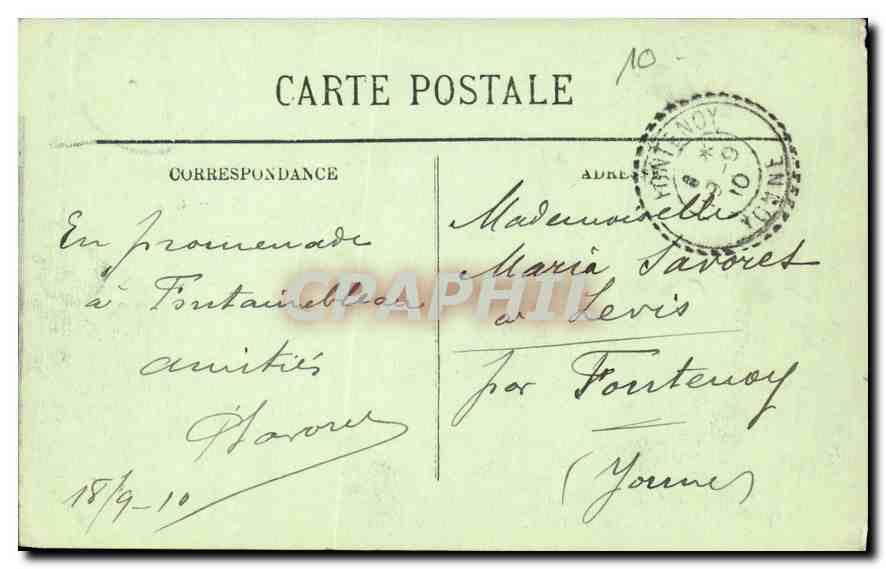 10
CARTE POSTALE
FONTENOY
YONNE
*
8
19-9
10
CORRESPONDANCE
ADRES
En promenade
à Fontainebleau
amitiés
18/9-10
Mademoiselle
Maria Savoret
à Levis
par Fontenoy
(Yonne)
CPAPHIL